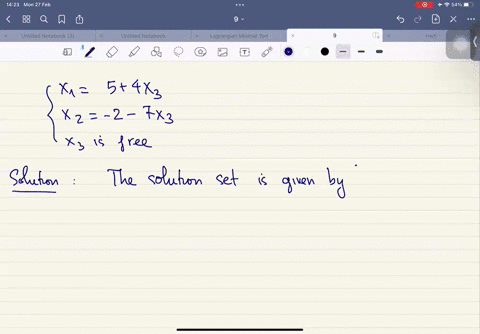 14:23 Mon 27 Feb
54%
9
Untitled Notebook (2)
Untitled Notebook
9
x₁ = 5 + 4x₃
x₂ = -2 - 7x₃
x₃ is free
Solution : The solution set is given by